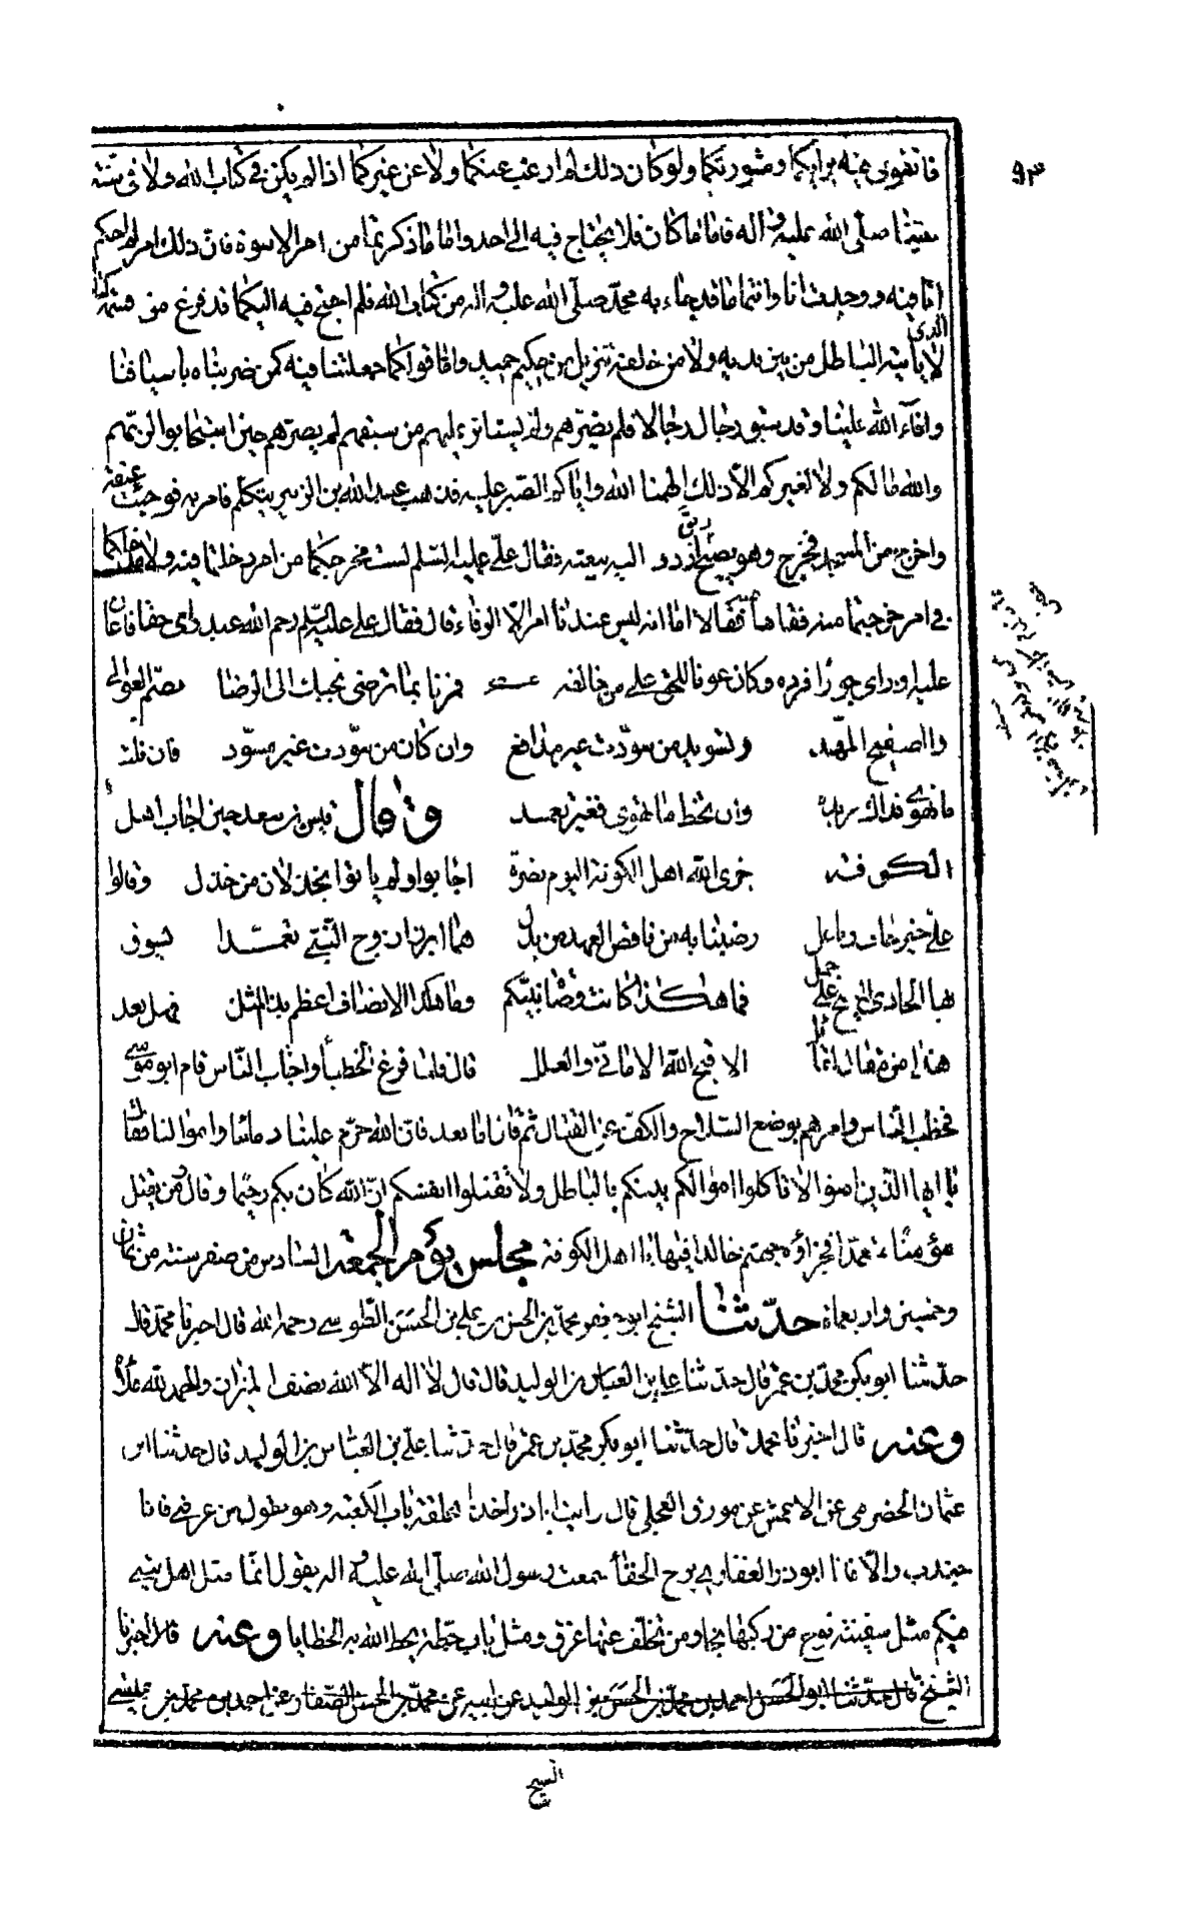 ٩٣
فاتقوى فيه برايكما ومشورتكما ولو كان ذلك لم ارغب عنكما ولا عن غيركما اذا لم يكن في كتاب الله ولا في سنة
نبينا صلى الله عليه واله فاما ما كان فلا يحتاج فيه الى احد واما ما ذكرتما من امر الاسوة فان ذلك امر لم احكم
انا فيه ووجدت انا وانتما ما قد جاء به محمد صلى الله عليه واله من كتاب الله فلم احتج فيه اليكما قد فرغ من قسمه كتاب
الذي
لا ياتيه الباطل من بين يديه ولا من خلفه تنزيل من حكيم حميد واما قولكما جعلتنا فيه كمن ضربناه باسيافنا
وافاء الله علينا وقد سبق رجال رجالا فلم يضرهم ولم يستاثر عليهم من سبقهم لم يضرهم حين استجابوا لربهم
والله ما لكم ولا لغيركم الا ذلك الهمنا الله واياكم الصبر عليه فذهب عبد الله بن الزبير يتكلم فامر به فوجئت عنقه
واخرج من المسجد فخرج وهو يصيح اردد اليه بيعته فقال علي عليه السلم لست مخرجكما من امر دخلتما فيه ولا مدخلكما
في امر خرجتما منه فقاما فقالا اما انه ليس عندنا امر الا الوفاء قال فقال علي عليه السلم رحم الله عبدا راى حقا فاعان
عليه او راى جورا فرده وكان عونا للحق على من خالفه فمرنا بما ترضى نجبك الى الرضا بصم العوالي
والصفيح المهند وتسويد من سودت غير مدافع وان كان من سودت غير مسود فان نلت
ما تهوى فذاك نريده وان تخط ما تهوى فغير تعمد وقال قيس بن سعد حين اجاب اهل
الكوفة جزى الله اهل الكوفة اليوم نصرة اجابوا ولم يابوا بخذلان من خذل وقالوا
علي خير حاف وناعل رضينا به من ناقض العهد من بدل هما ابرزا زوج النبي تعمدا يسوق
بها الحادي المنيخ على جمل فما هكذا كانت وصاة نبيكم وما هكذا الانصاف اعظم بذا المثل فهل بعد
هذا من مقال لقائل الا قبح الله الاماني والعلل قال فلما فرغ الخطباء واجاب الناس قام ابو موسى
فخطب الناس وامرهم بوضع السلاح والكف عن القتال ثم قال اما بعد فان الله حرم علينا دماءنا واموالنا فقال
يا ايها الذين امنوا لا تاكلوا اموالكم بينكم بالباطل ولا تقتلوا انفسكم ان الله كان بكم رحيما وقال ومن يقتل
مؤمنا متعمدا فجزاؤه جهنم خالدا فيها يا اهل الكوفة مجلس يوم الجمعة السادس من صفر سنة من ثمان
وخمسين واربعماة حدثنا الشيخ ابو جعفر محمد بن الحسن بن علي بن الحسن الطوسي رحمه الله قال اخبرنا محمد قال
حدثنا ابو بكر محمد بن عمر قال حدثنا علي بن العباس بن الوليد قال قال لا اله الا الله نصف الميزان والحمد لله ملاه
وعنه قال اخبرنا محمد قال حدثنا ابو بكر محمد بن عمر قال حدثنا علي بن العباس بن الوليد قال حدثنا ابن
عثمان الحضرمي عن الاعمش عن مورق العجلي قال رايت اباذر اخذا بحلقة باب الكعبة وهو يقول من عرفني فانا
جندب والا فانا ابو ذر الغفاري برح الخفا سمعت رسول الله صلى الله عليه واله يقول انما مثل اهل بيتي
فيكم مثل سفينة نوح من ركبها نجا ومن تخلف عنها غرق ومثل باب حطة يحط الله به الخطايا وعنه قال اخبرنا
الشيخ قال حدثنا ابو الحسن احمد بن محمد بن الحسن بن الوليد عن ابيه عن محمد بن الحسن الصفار عن احمد بن محمد بن عيسى
الشيخ